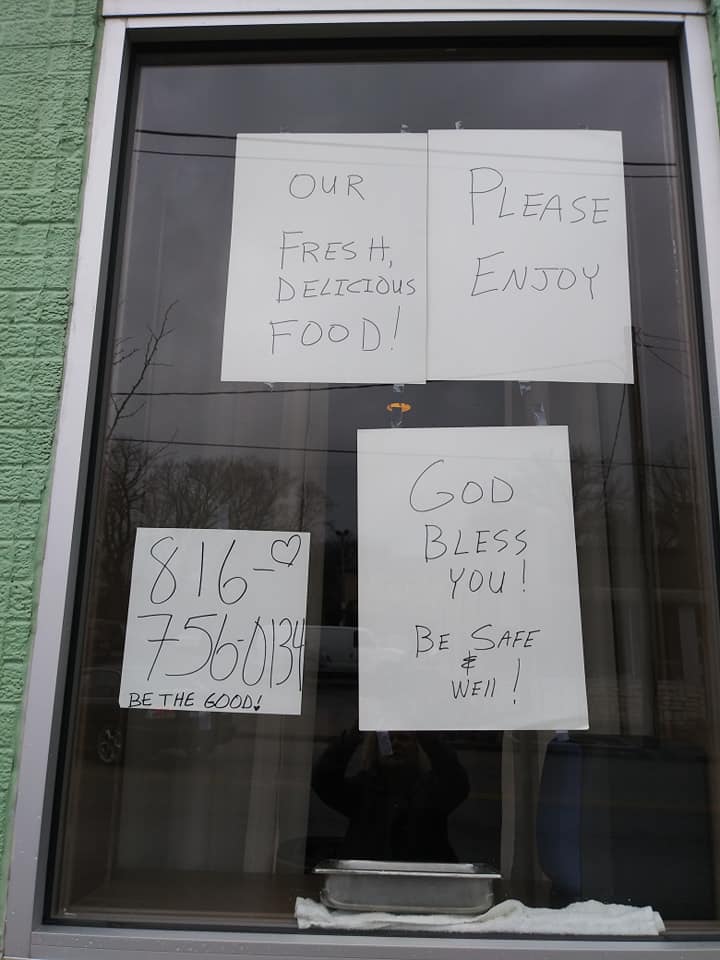 OUR
FRESH,
DELICIOUS
FOOD!
PLEASE
ENJOY
GOD
BLESS
YOU!
BE SAFE
&
WEll!
816-♡
756-0134
BE THE GOOD!